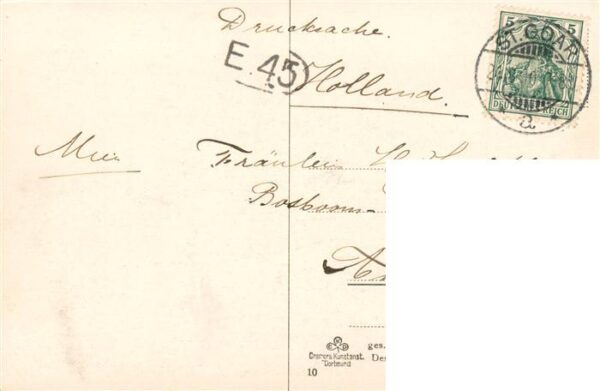 Drucksache.
E. 45
Holland.
5 5
ST. GOAR
DEUTSCHES REICH
a
Fräulein H.
Bosboom-
A
ges.
Cramers Kunstanst.
Dortmund
Des
10